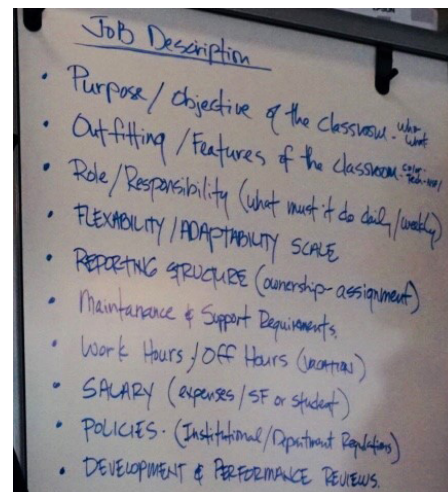 Job Description
• Purpose / Objective of the classroom - who what
• Outfitting / Features of the classroom - color tech
• Role / Responsibility (what must it do daily / weekly)
• FLEXABILITY / ADAPTABILITY SCALE
• REPORTING STRUCTURE (ownership - assignment)
• Maintanance & Support Requirements.
• Work Hours / Off Hours (VACATION)
• SALARY (expenses / SF or student)
• POLICIES - (Institutional / Department Regulations)
• DEVELOPMENT & PERFORMANCE REVIEWS.